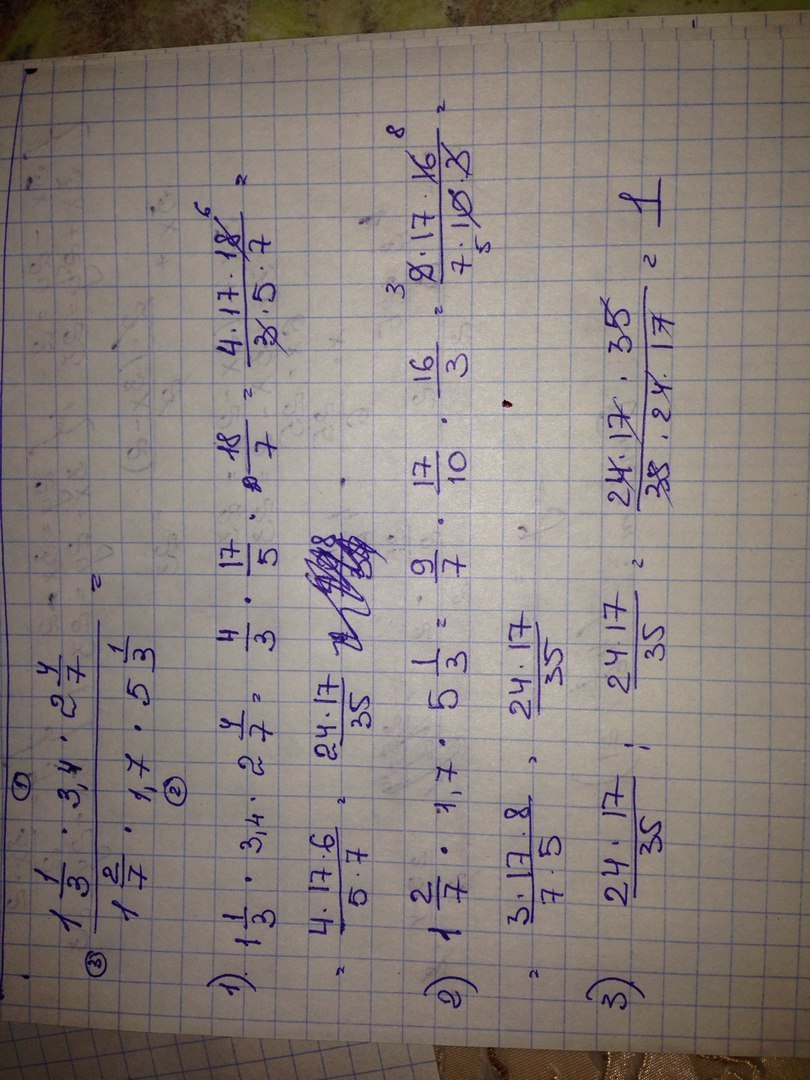 ①
1 1/3 · 3,4 · 2 4/7
③ ―――――――――― =
1 2/7 · 1,7 · 5 1/3
②
1) 1 1/3 · 3,4 · 2 4/7 = 4/3 · 17/5 · 18/7 = 4·17·18 6 / 3·5·7 =
= 4·17·6 / 5·7 = 24·17 / 35
2) 1 2/7 · 1,7 · 5 1/3 = 9/7 · 17/10 · 16/3 = 3 9·17·16 8 / 7·10 5·3 =
= 3·17·8 / 7·5 = 24·17 / 35
3) 24·17 / 35 : 24·17 / 35 = 24·17·35 / 35·24·17 = 1